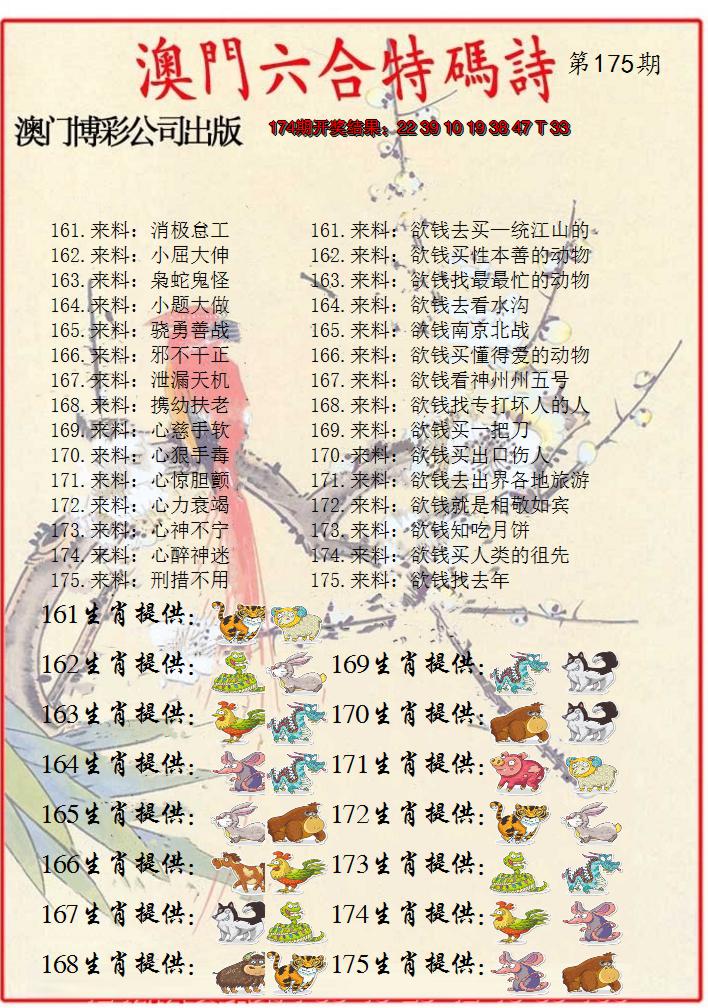 澳門六合特碼詩 第175期
澳门博彩公司出版 174期开奖结果：22 39 10 19 38 47 T 33
161.来料：消极怠工 161.来料：欲钱去买一统江山的
162.来料：小屈大伸 162.来料：欲钱买性本善的动物
163.来料：枭蛇鬼怪 163.来料：欲钱找最最忙的动物
164.来料：小题大做 164.来料：欲钱去看水沟
165.来料：骁勇善战 165.来料：欲钱南京北战
166.来料：邪不干正 166.来料：欲钱买懂得爱的动物
167.来料：泄漏天机 167.来料：欲钱看神州州五号
168.来料：携幼扶老 168.来料：欲钱找专打坏人的人
169.来料：心慈手软 169.来料：欲钱买一把刀
170.来料：心狠手毒 170.来料：欲钱买出口伤人
171.来料：心惊胆颤 171.来料：欲钱去出界各地旅游
172.来料：心力衰竭 172.来料：欲钱就是相敬如宾
173.来料：心神不宁 173.来料：欲钱知吃月饼
174.来料：心醉神迷 174.来料：欲钱买人类的祖先
175.来料：刑措不用 175.来料：欲钱找去年
161生肖提供：
162生肖提供： 169生肖提供：
163生肖提供： 170生肖提供：
164生肖提供： 171生肖提供：
165生肖提供： 172生肖提供：
166生肖提供： 173生肖提供：
167生肖提供： 174生肖提供：
168生肖提供： 175生肖提供：